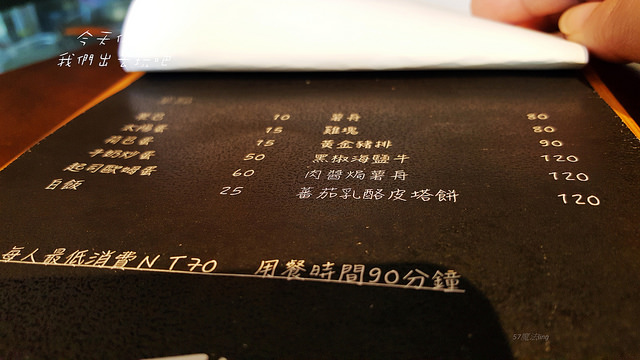 今天
我們出去玩吧
單點
黑包 10 薯舟 80
太陽蛋 15 雞塊 80
荷包蛋 15 黃金豬排 90
牛奶炒蛋 50 黑椒海鹽牛 120
起司歐姆蛋 60 肉醬焗薯舟 120
白飯 25 蕃茄乳酪皮塔餅 120
每人最低消費NT70 用餐時間90分鐘